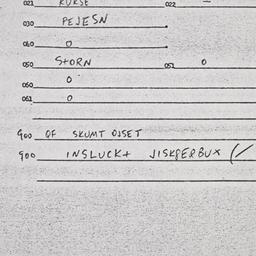 021 KURSE 022 —
030 PEJESN
040 O
050 STORN 051 O
060 O
061 O
900 OF SKUMT OJSET
900 INSLUCKT JISKPERBUX (/